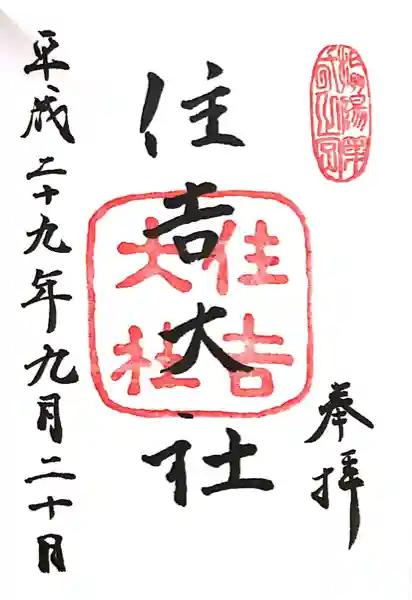 奉拝
住吉大社
住吉
大社
平成二十九年九月二十日